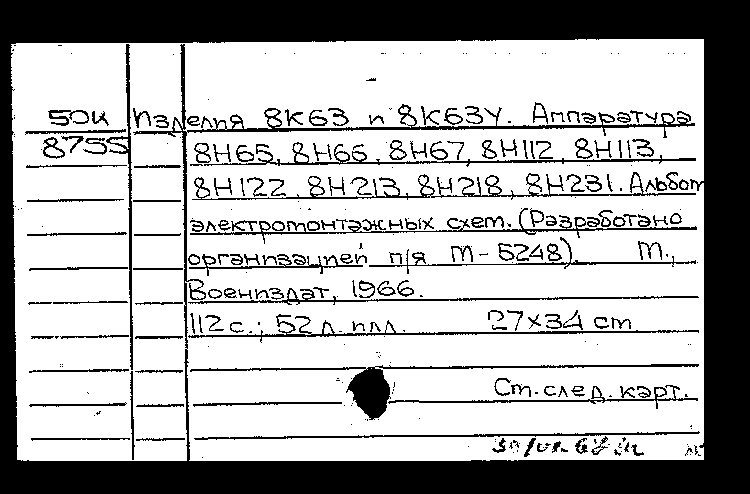 50и Изделия 8К63 и 8К63У. Аппаратура
8755 8Н65, 8Н66, 8Н67, 8Н112, 8Н113,
8Н122, 8Н213, 8Н218, 8Н231. Альбом
электромонтажных схем. (Разработано
организацией п/я М-5248). М.,
Воениздат, 1966.
112 с.; 52 л. илл. 27х34 см
См. след. карт.